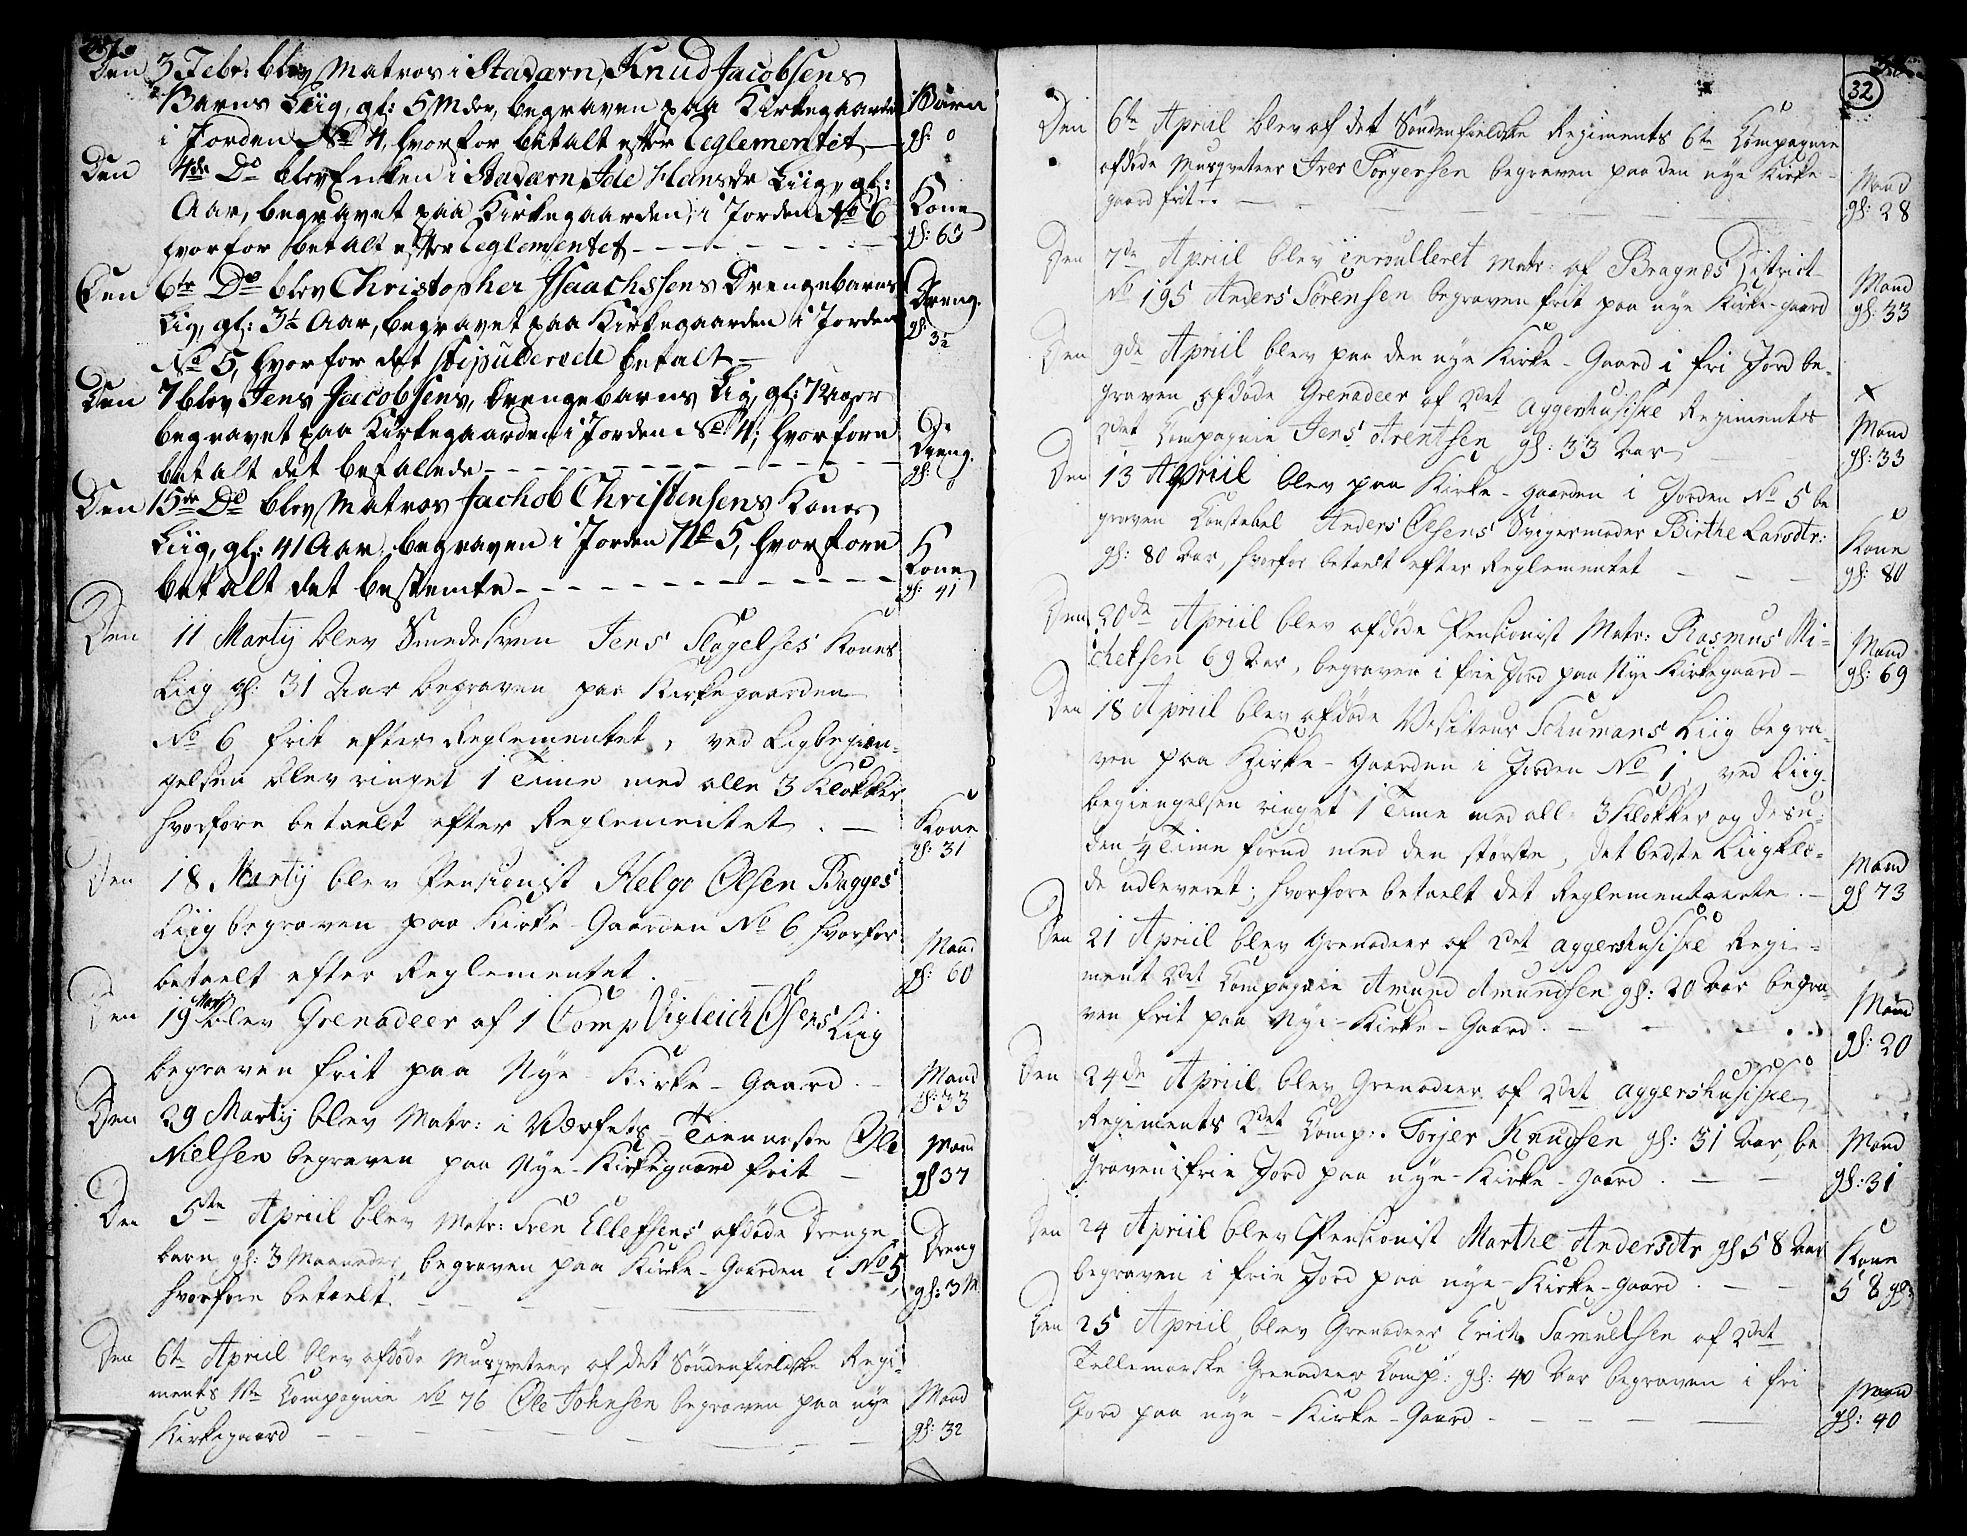 Den 3 Febr: blev Matros i Staværn, Knud Jacobsens
Barns Liig, gl: 5 Mdr, begraven paa Kirkegaarden
i Jorden No 4, hvorfor betalt efter Reglementet —
Barn
gl: 0
Den 4de Do blev Enken i Staværn, Ide Hansdr Liig, gl:
Aar, begravet paa Kirkegaarden, i Jorden No 6
hvorfor betalt efter Reglementet
Kone
gl: 63
Den 6te Do blev Christopher Isaachssens Drengebarns
Lig, gl: 3½ Aar, begravet paa Kirkegaarden i Jorden
No 5, hvorfor det stipulerede betalt —
Dreng.
gl: 3½
Den 7 blev Jens Jacobsens, Drengebarns Lig, gl: 7 Uger
begravet paa Kirkegaarden i Jorden No 4; hvorfore
betalt det befalede
Dreng.
gl: 0
Den 15de Do blev Matros Jachob Christensens Kones
Liig, gl: 41 Aar, begraven i Jorden No 5, hvorfore
betalt det bestemte
Kone
gl: 41
Den 11 Martij blev Smedesven Jens Slagelses Kones
Liig gl: 31 Aar begraven paa Kirkegaarden
No 6 frit efter Reglementet, ved Ligbegien-
gelsen blev ringet 1 Time med alle 3 Klokker
hvorfore betaelt efter Reglementet. —
Kone
gl: 31
Den 18 Martij blev Pensionist Helge Olsen Bagges
Liig begraven paa Kirke-Gaarden No 6 hvorfor
betaelt efter Reglementet.
Mand
gl: 60
Den 19 Mart blev Grenadeer af 1 Comp Vigleich Olsens Liig
begraven frit paa Nye Kirke-Gaard. —
Mand
gl: 33
Den 29 Martij blev Matr: i Værfets Tienneste Ole
Nielsen begraven paa Nye-Kirkegaard frit —
Mand
gl 37
Den 5te Apriil blev Matr: Sven Ellefsens afdøde Drenge-
barn gl: 3 Maaneder, begraven paa Kirke-Gaarden i No 5
hvorfore betaelt.
Dreng
gl: 3 M
Den 6te Apriil blev afdøde Musqveteer af det Søndenfieldske Regi-
ments Compagnie No 76 Ole Johnsen begraven paa nye
Kirkegaard
Mand
gl: 32
32
Den 6te Apriil blev af det Søndenfieldske Regiments 6te Compagnie
afdøde Musqveteer Iver Torgersen begraven paa den nye Kirke-
gaard frit
Mand
gl: 28
Den 7de Apriil blev inroulleret Matr: af Bragnes District
No 195 Anders Sørensen begraven frit paa nye Kirke-gaard
Mand
gl: 33
Den 9de Apriil blev paa den nye Kirke-Gaard i fri Jord be-
graven afdøde Grenadeer af 2det Aggershusiske Regiments
2det Compagnie Jens Arentsen gl: 33 Aar
x
Mand
gl: 33
Den 13 Apriil blev paa Kirke-gaarden i Jorden No 5 be
graven Constabel Anders Olsens Svigermoder Birthe Larsdtr:
gl: 80 Aar, hvorfor betaelt efter Reglementet
Kone
gl: 80
Den 20de Apriil blev afdøde Pensionist Matr: Rasmus Mi-
chelsen 69 Aar, begraven i frie Jord paa Nye Kirkegaard —
Mand
gl: 69
Den 18 Apriil blev afdøde Visiteur Schumans Liig begra-
ven paa Kirke-Gaarden i Jorden No 1, ved Liig-
begiengelsen ringet 1 Time med alle 3 Klokker og desu-
den ¼ Time forud med den største, det bedste Liigklæ-
de udleveret; hvorfore betaelt det Reglementerede. —
Mand
gl 73
Den 21 Apriil blev Grenadeer af 2det Aggershusiske Regi-
ment 2det Compagnie Amund Amundsen gl: 20 Aar begra-
ven frit paa Nye-Kirke-Gaard.
Mand
gl: 20
Den 24de Apriil blev Grenadeer af 2det Aggershusiske
Regiments 2det Comp: Torjer Knudsen gl: 31 Aar, be
graven i frie Jord paa nye-Kirke-gaard.
Mand
gl: 31
Den 24 Apriil blev Pensionist Marthe Andersdtr gl 58 Aar
begraven i frie Jord paa nye-Kirke-gaard.
Kone
58 gl:
Den 25 Apriil blev Grenadeer Erich Samuelsen af 2det
Tellemarske Grenadeer Comp: gl: 40 Aar begraven i fri
Jord paa nye-Kirke-Gaard
Mand
gl: 40